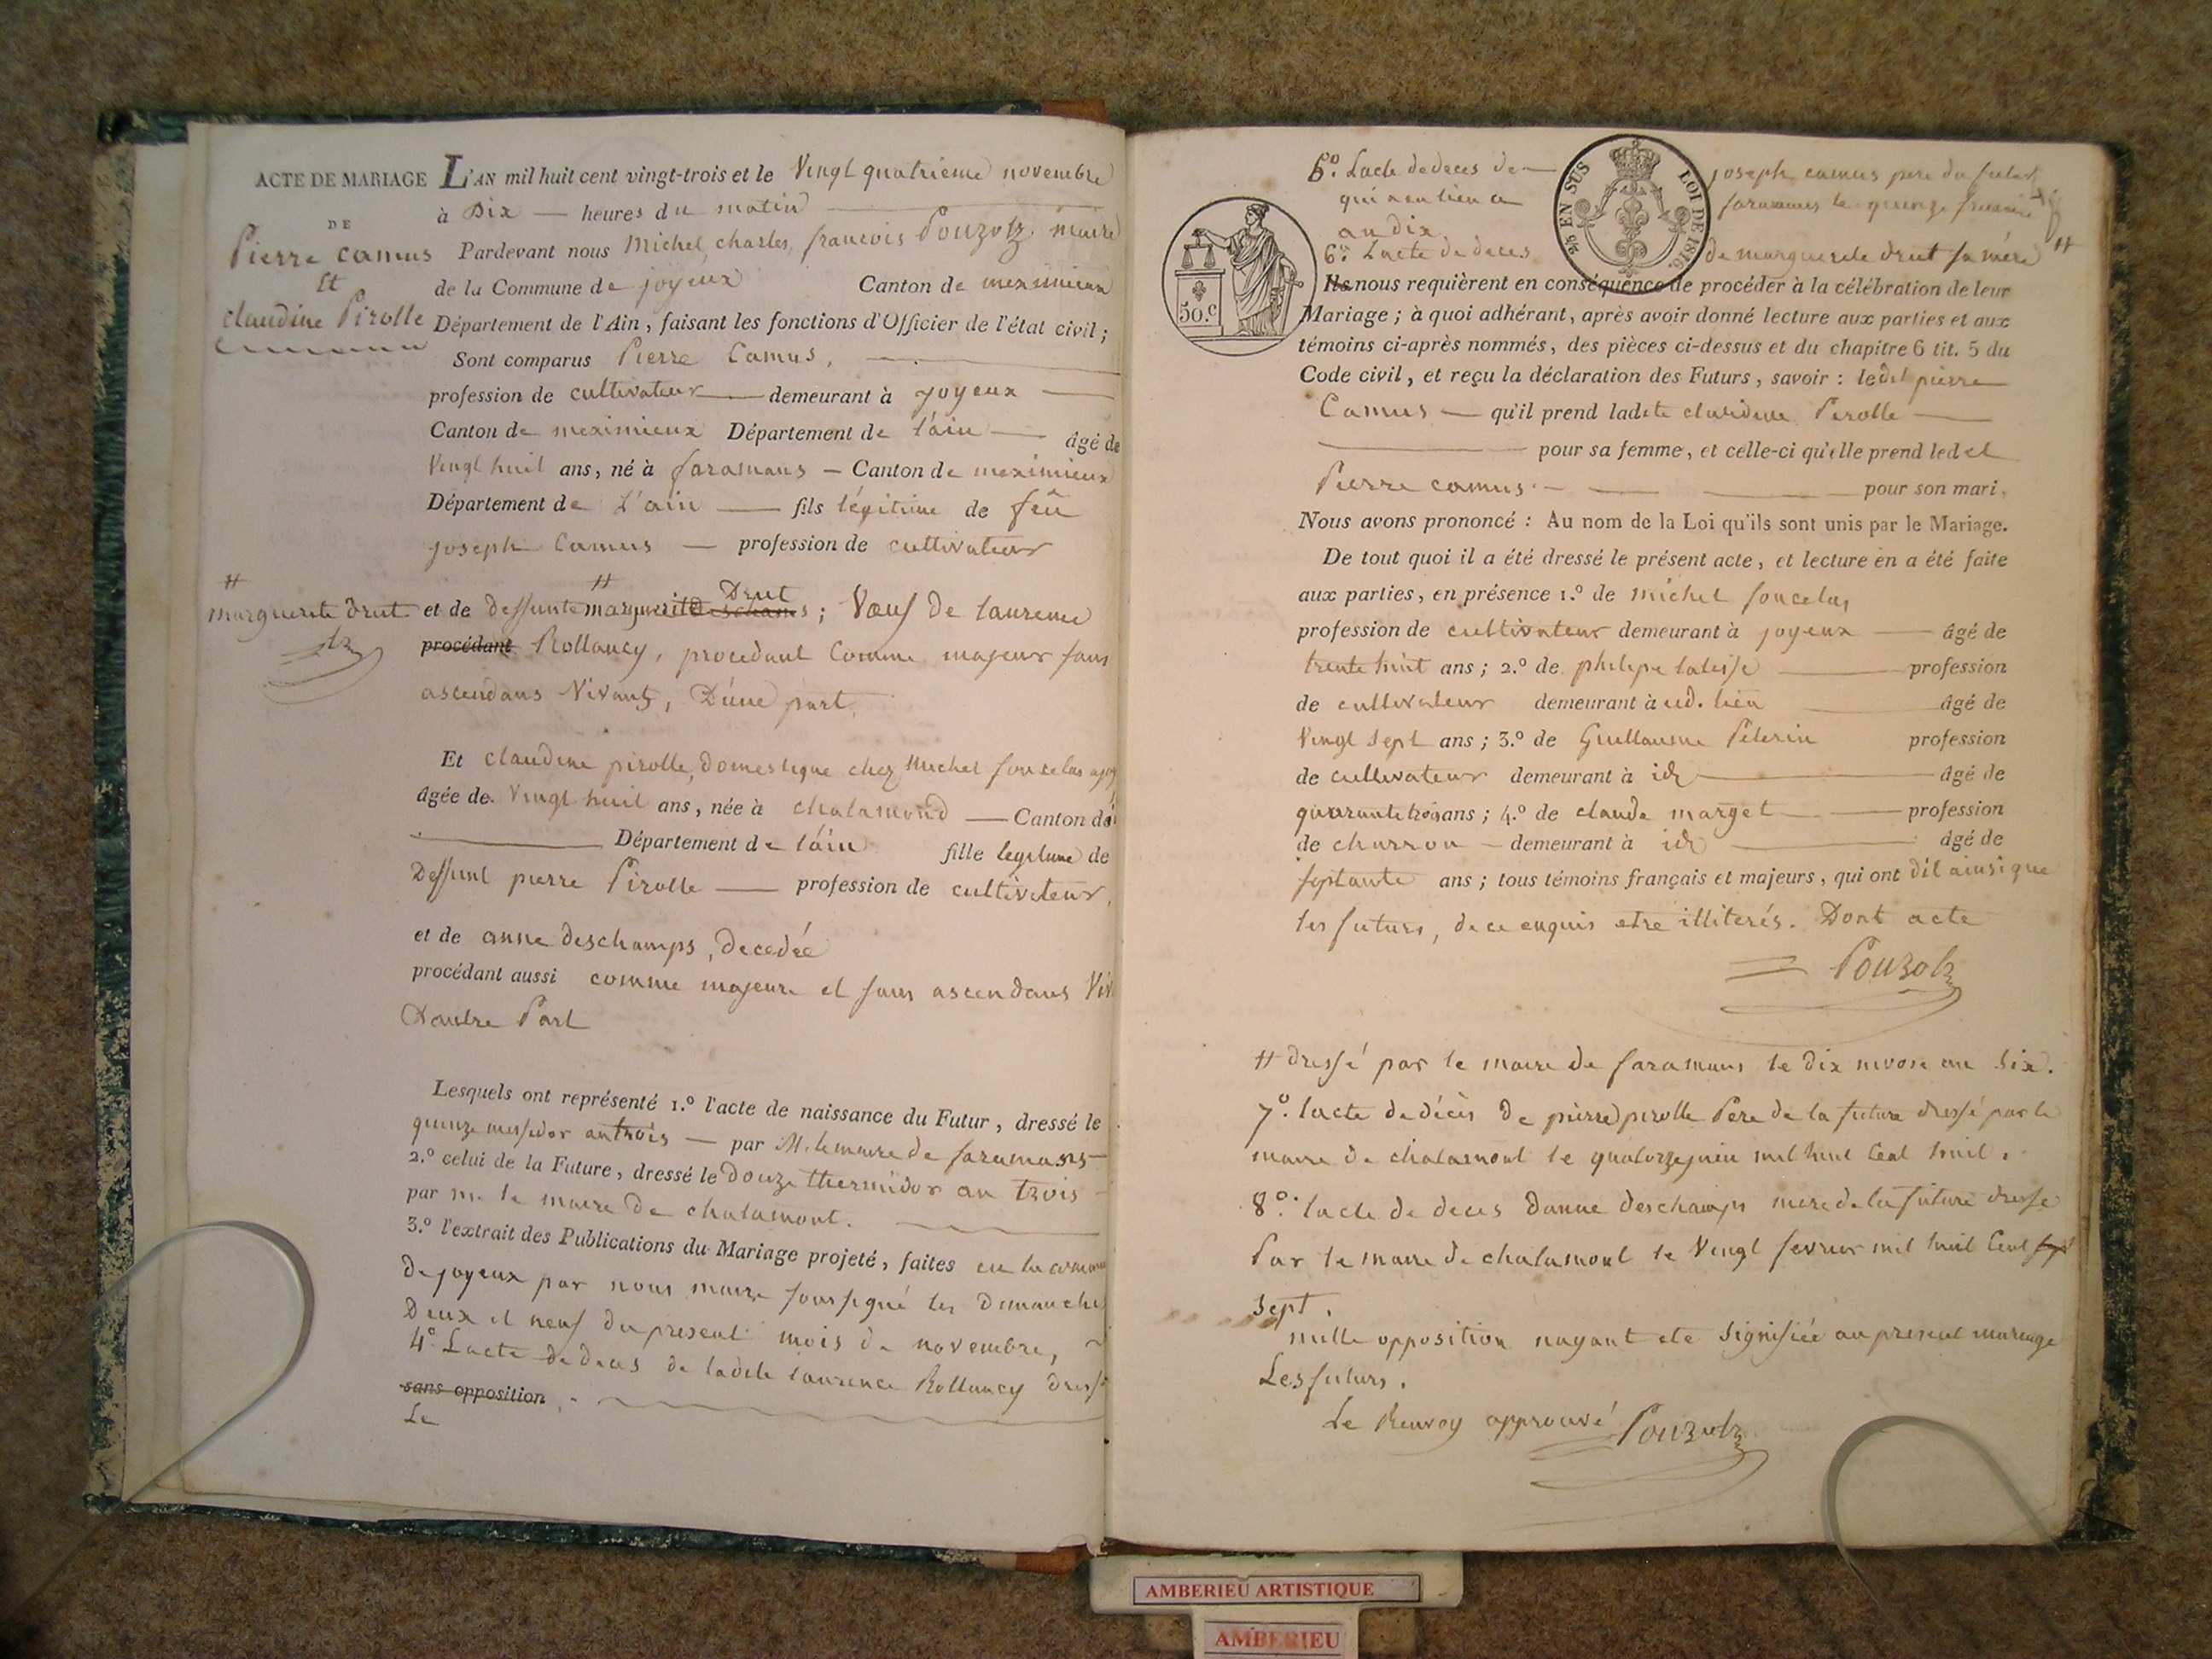 ACTE DE MARIAGE
DE
Pierre camus
Et
claudine Pirolle
L'AN mil huit cent vingt-trois et le Vingt quatrieme novembre
à Dix — heures du matin
Pardevant nous Michel, charles, francois Pouzols maire
de la Commune de joyeux Canton de meximieux
Département de l'Ain, faisant les fonctions d'Officier de l'état civil;
Sont comparus Pierre Camus,
profession de cultivateur — demeurant à joyeux —
Canton de meximieux Département de l'ain — âgé de
Vingt huit ans, né à faramans — Canton de meximieux
Département de L'ain — fils légitime de feû
joseph Camus — profession de cultivateur
# marguerite drut
et de deffunte marguerite deschams Drut; Vœuf de laurence
procédant Rollancy, procedant Comme majeur sans
ascendans Vivants, D'une part,
Et claudine pirolle, domestique chez Michel foucelas
âgée de Vingt huit ans, née à chalamond — Canton de
Département de l'ain fille legitime de
Deffunt pierre Pirolle — profession de cultivateur,
et de anne deschamps, decedée
procédant aussi comme majeure et sans ascendans Viv
D'autre Part
Lesquels ont représenté 1.º l'acte de naissance du Futur, dressé le
quinze messidor an trois — par M. le maire de faramans
2.º celui de la Future, dressé le douze thermidor an trois
par m. le maire de chalamont.
3.º l'extrait des Publications du Mariage projeté, faites en la commune
de joyeux par nous maire soussigné les Dimanches
Deux et neuf du present mois de novembre,
4º Lacte de deces de ladite laurence Rollancy dressé
sans opposition
Le
5º. Lacte de deces de — joseph camus pere du futur
qui a eu lieu a faramans le quinze
an dix
6º. Lacte de deces de marguerite drut sa mère #
25 EN SUS LOI DE 1816
50.C
Ils nous requièrent en conséquence de procéder à la célébration de leur
Mariage; à quoi adhérant, après avoir donné lecture aux parties et aux
témoins ci-après nommés, des pièces ci-dessus et du chapitre 6 tit. 5 du
Code civil, et reçu la déclaration des Futurs, savoir: ledit pierre
Camus — qu'il prend ladite claudine Perolle —
pour sa femme, et celle-ci qu'elle prend ledit
Pierre camus — pour son mari,
Nous avons prononcé: Au nom de la Loi qu'ils sont unis par le Mariage.
De tout quoi il a été dressé le présent acte, et lecture en a été faite
aux parties, en présence 1.º de michel foucelas
profession de cultivateur demeurant à joyeux — âgé de
trente huit ans; 2.º de philipe lateisse — profession
de cultivateur demeurant à ud. lieu — âgé de
Vingt sept ans; 3.º de Guillaume Pelerin profession
de cultivateur demeurant à id — âgé de
quarante trois ans; 4.º de claude marget — profession
de charron — demeurant à id — âgé de
septante ans; tous témoins français et majeurs, qui ont dit ainsi que
les futurs, de ce enquis etre illiterés. Dont acte
Pouzols
# dressé par le maire de faramans le dix nivose an six.
7º. lacte de décès de pierre pirolle Pere de la future dressé par le
maire de chalamont le quatorze juin mil huit Cent huit.
8º. lacte de deces danne deschamps mere de la future dressé
Par le maire de chalamont le Vingt fevrier mil huit Cent sept
sept.
nulle opposition nayant ete signifiée au present mariage
Les futurs.
Le Renvoy approuvé Pouzols
AMBERIEU ARTISTIQUE
AMBERIEU